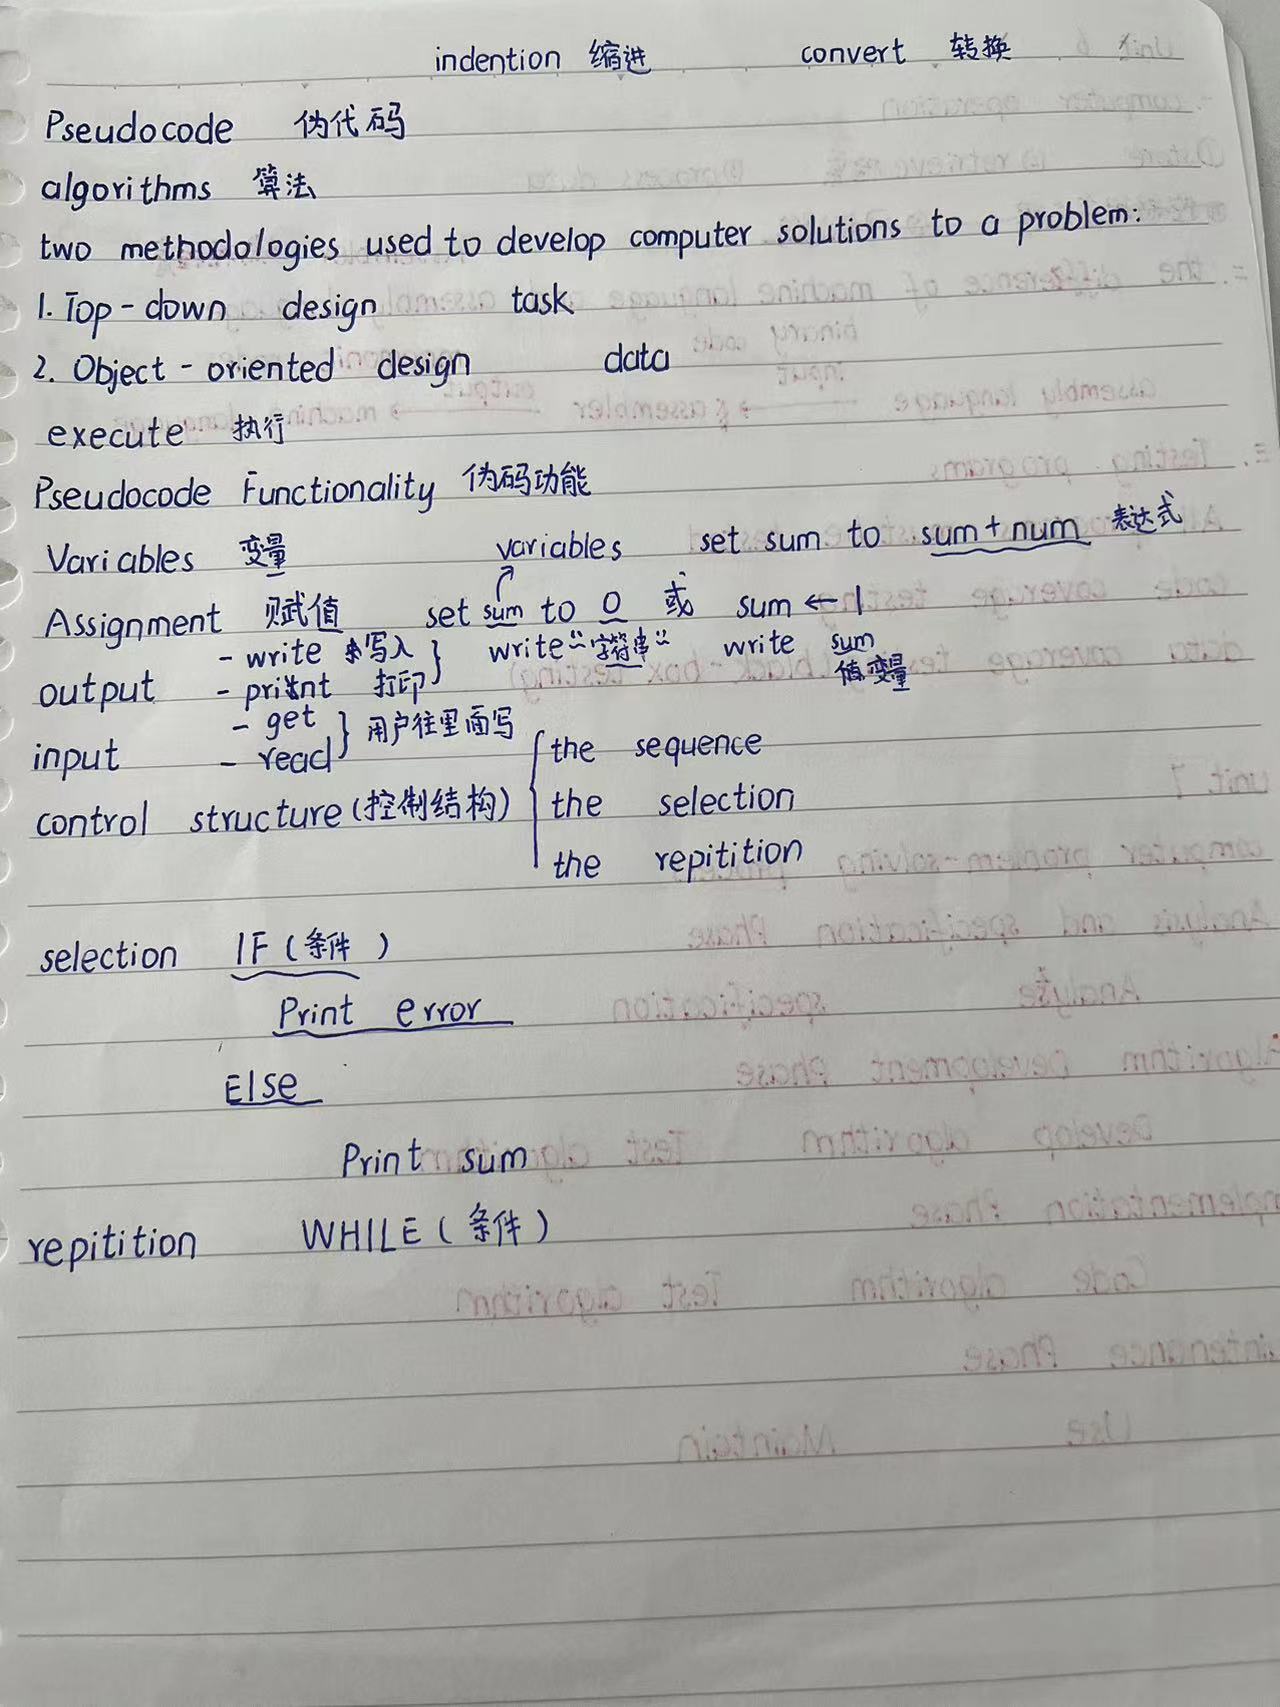 indention 缩进 convert 转换
Pseudocode 伪代码
algorithms 算法
two methodologies used to develop computer solutions to a problem:
1. Top-down design task
2. Object-oriented design data
execute 执行
Pseudocode Functionality 伪码功能
Variables 变量 variables set sum to sum+num 表达式
Assignment 赋值 set sum to 0 或 sum ← 1
- write 写入 write “字符串” write sum
output - print 打印 值变量
- get
input - read } 用户往里面写
the sequence
control structure (控制结构) the selection
the repitition
selection IF (条件)
Print error
Else
Print sum
repitition WHILE (条件)